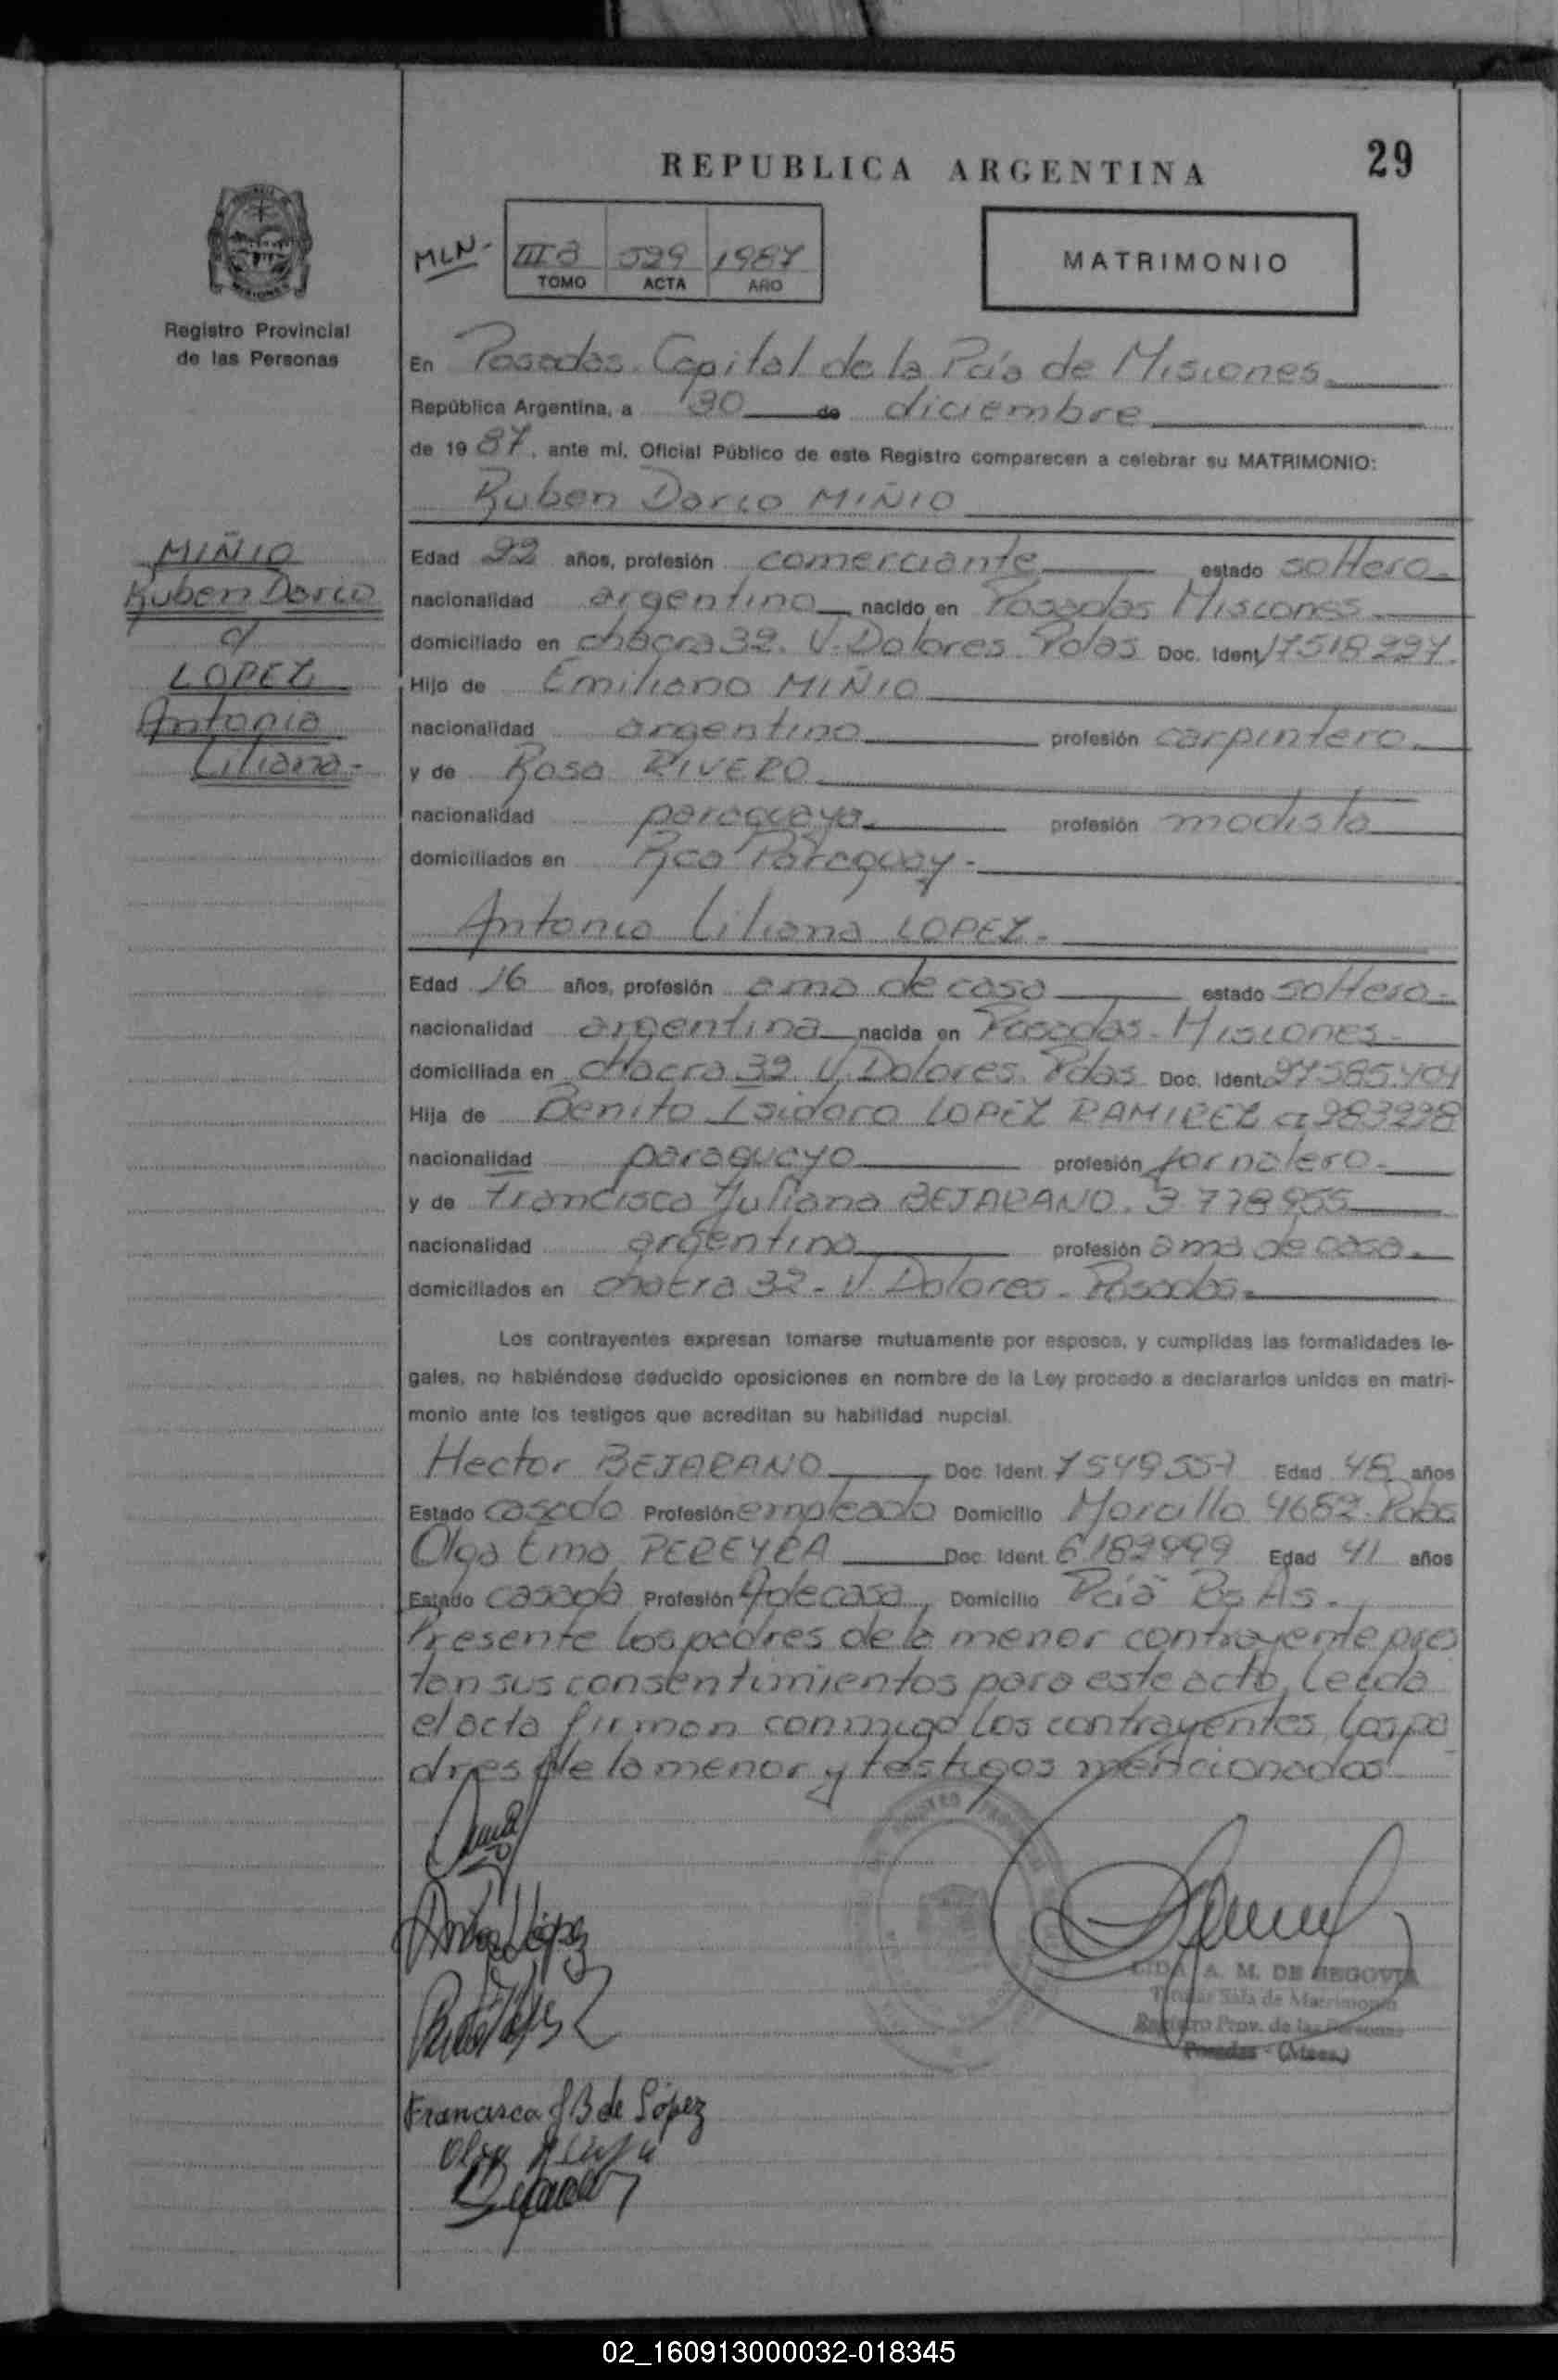 29
REPUBLICA ARGENTINA
MLN-
III B 529 1987
TOMO ACTA AÑO
MATRIMONIO
Registro Provincial
de las Personas
En Posadas Capital de la Pcia de Misiones
República Argentina, a 30 de diciembre
de 1987, ante mí, Oficial Público de este Registro comparecen a celebrar su MATRIMONIO:
Ruben Dario MIÑIO
MIÑIO
Ruben Dario
c/
LOPEZ
Antonia
Liliana-
Edad 22 años, profesión comerciante estado soltero
nacionalidad argentino nacido en Posadas Misiones
domiciliado en chacra 32. V. Dolores Pdas Doc. Ident 17518227
Hijo de Emiliano MIÑIO
nacionalidad argentino profesión carpintero
y de Rosa RIVERO
nacionalidad paraguaya profesión modista
domiciliados en Rca Paraguay-
Antonia Liliana LOPEZ-
Edad 16 años, profesión ama de casa estado soltera
nacionalidad argentina nacida en Posadas-Misiones
domiciliada en chacra 32 V. Dolores. Pdas Doc. Ident.
Hija de Benito Isidoro LOPEZ RAMIREZ
nacionalidad paraguayo profesión jornalero
y de Francisca Juliana BEJARANO. 3.778955
nacionalidad argentina profesión ama de casa
domiciliados en chacra 32- V. Dolores- Posadas
Los contrayentes expresan tomarse mutuamente por esposos, y cumplidas las formalidades le-
gales, no habiéndose deducido oposiciones en nombre de la Ley procedo a declararlos unidos en matri-
monio ante los testigos que acreditan su habilidad nupcial.
Hector BEJARANO Doc. Ident. 7549557 Edad 48 años
Estado casado Profesión empleado Domicilio 4682. Pdas
Olga Ema PEREYRA Doc. Ident. 6182999 Edad 41 años
Estado casada Profesión A de casa Domicilio Pcia Bs As.
Presente los padres de la menor contrayente pres
tan sus consentimientos para este acto, Leida
el acta firman conmigo los contrayentes, los pa
dres de la menor y testigos mencionados
Antonia López
LIDA A. M. DE SEGOVIA
Titular Sala de Matrimonio
Registro Prov. de las Personas
Posadas - (Mnes.)
Francisca J B de López
02_160913000032-018345